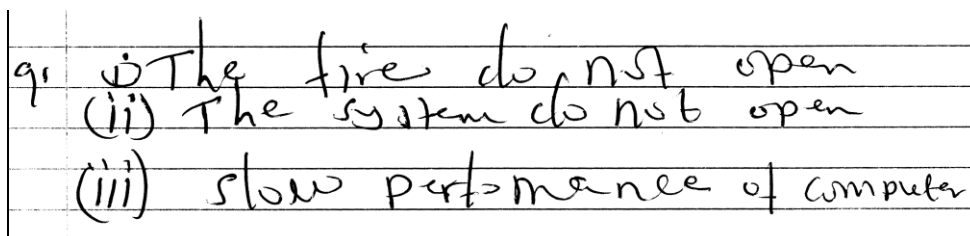 9. i) The fire do not open
(ii) The system do not open
(iii) slow perfomance of computer